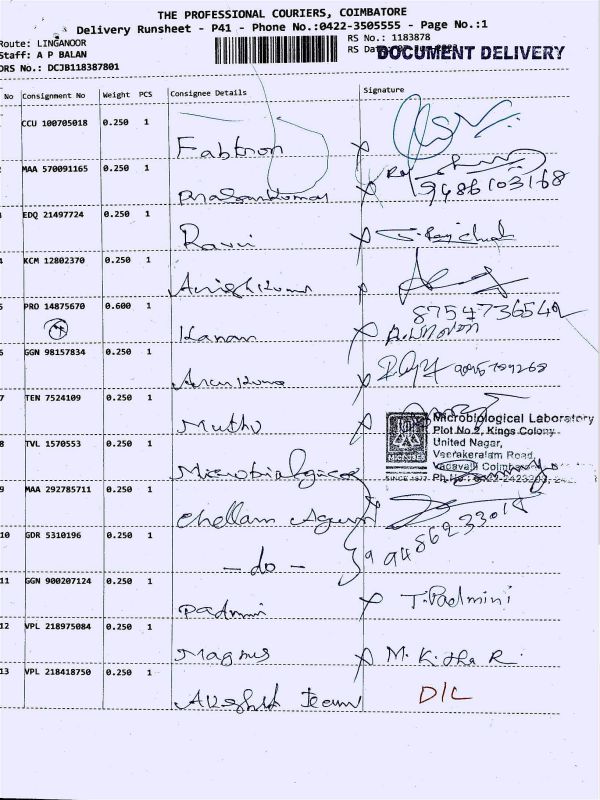 THE PROFESSIONAL COURIERS, COIMBATORE
Delivery Runsheet - P41 - Phone No.:0422-3505555 - Page No.:1
Route: LINGANOOR
RS No.: 1183878
Staff: A P BALAN
RS
DOCUMENT DELIVERY
DRS No.: DCJB118387801
No Consignment No Weight PCS Consignee Details Signature
CCU 100705018 0.250 1
Fabtron
MAA 570091165 0.250 1
9486103168
EDQ 21497724 0.250 1
Ravi
KCM 12802370 0.250 1
PRO 14875670 0.600 1
8754736542
Kanan
6 GGN 98157834 0.250 1
Arun Kuma
7 TEN 7524109 0.250 1
Muthu
Microbiological Laboratory
Plot No.2, Kings Colony
United Nagar,
Veerakeralam Road,
Vadavalli Coimbatore
SINCE 1977
8 TVL 1570553 0.250 1
9 MAA 292785711 0.250 1
Chellam
10 GDR 5310196 0.250 1
- do -
9486233014
11 GGN 900207124 0.250 1
Padmini
T. Padmini
12 VPL 218975084 0.250 1
Magnus
13 VPL 218418750 0.250 1
Team
D/L